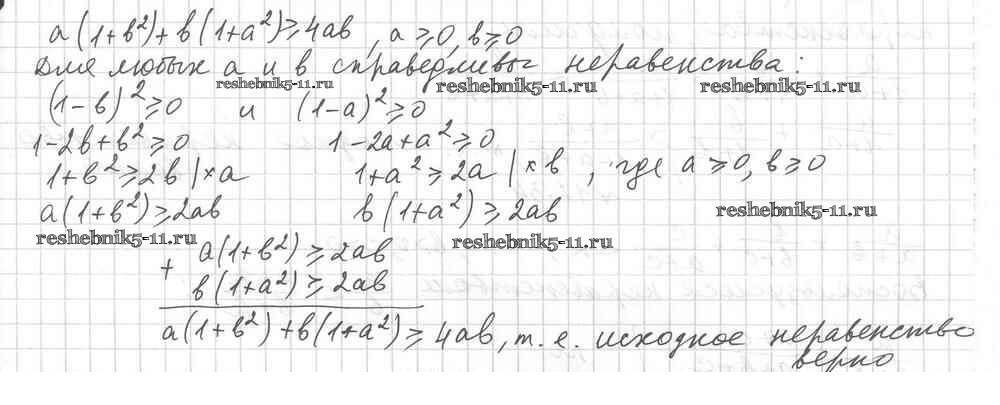 a(1+b²)+b(1+a²)≥4ab, a≥0, b≥0
Для любых a и b справедливы неравенства:
reshebnik5-11.ru reshebnik5-11.ru reshebnik5-11.ru
(1-b)²≥0 и (1-a)²≥0
1-2b+b²≥0 1-2a+a²≥0
1+b²≥2b |×a 1+a²≥2a |×b, где a≥0, b≥0
a(1+b²)≥2ab b(1+a²)≥2ab reshebnik5-11.ru
reshebnik5-11.ru reshebnik5-11.ru
+ a(1+b²)≥2ab
b(1+a²)≥2ab
a(1+b²)+b(1+a²)≥4ab, т. е. исходное неравенство
верно